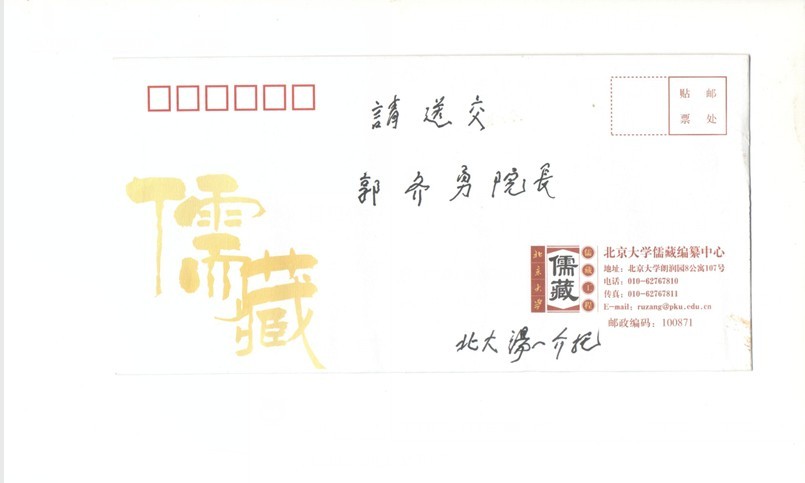 請送交
郭齐勇院長
贴邮
票处
儒藏
北京大学
儒藏
儒藏工程
北京大学儒藏编纂中心
地址：北京大学朗润园8公寓107号
电话：010-62767810
传真：010-62767811
E-mail：ruzang@pku.edu.cn
邮政编码：100871
北大湯一介托